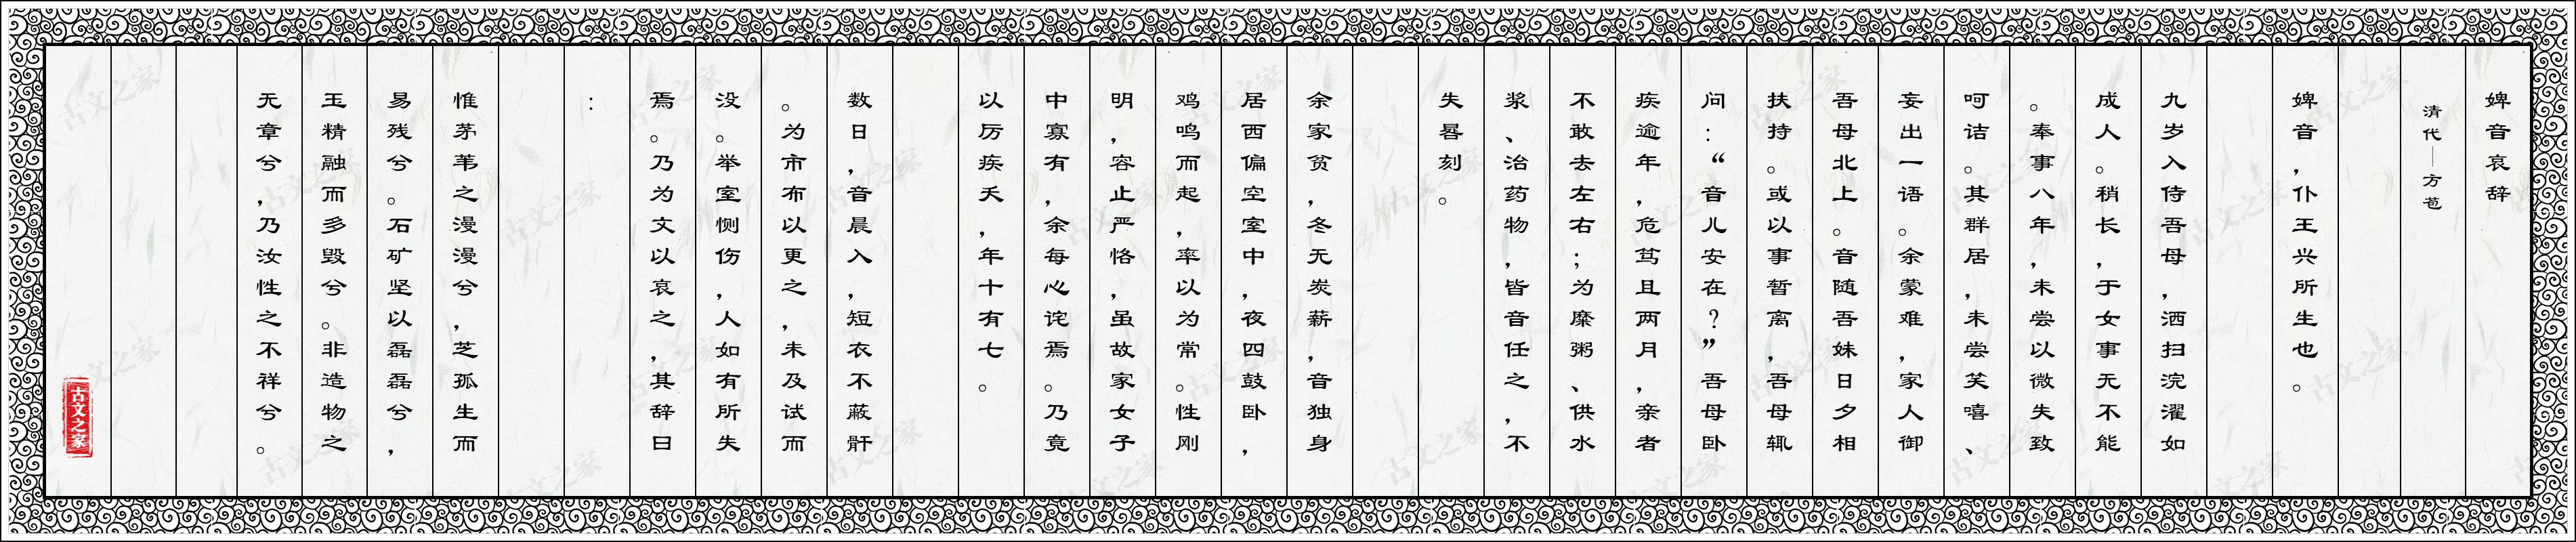 婢音哀辞
清代—方苞
婢音，仆王兴所生也。
九岁入侍吾母，洒扫浣濯如
成人。稍长，于女事无不能
。奉事八年，未尝以微失致
呵诘。其群居，未尝笑嘻、
妄出一语。余蒙难，家人御
吾母北上。音随吾妹日夕相
扶持。或以事暂离，吾母辄
问：“音儿安在？”吾母卧
疾逾年，危笃且两月，亲者
不敢去左右；为糜粥、供水
浆、治药物，皆音任之，不
失晷刻。
余家贫，冬无炭薪，音独身
居西偏空室中，夜四鼓卧，
鸡鸣而起，率以为常。性刚
明，容止严恪，虽故家女子
中寡有，余每心诧焉。乃竟
以厉疾夭，年十有七。
数日，音晨入，短衣不蔽骭
。为市布以更之，未及试而
没。举室恻伤，人如有所失
焉。乃为文以哀之，其辞曰
：
惟茅苇之漫漫兮，芝孤生而
易残兮。石矿坚以磊磊兮，
玉精融而多毁兮。非造物之
无章兮，乃汝性之不祥兮。
古文之家